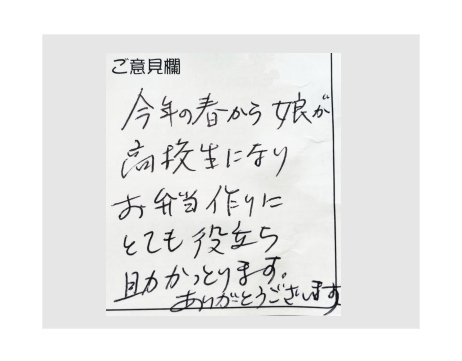 ご意見欄
今年の春から娘が
高校生になり
お弁当作りに
とても役立ち
助かっとります。
ありがとうございます